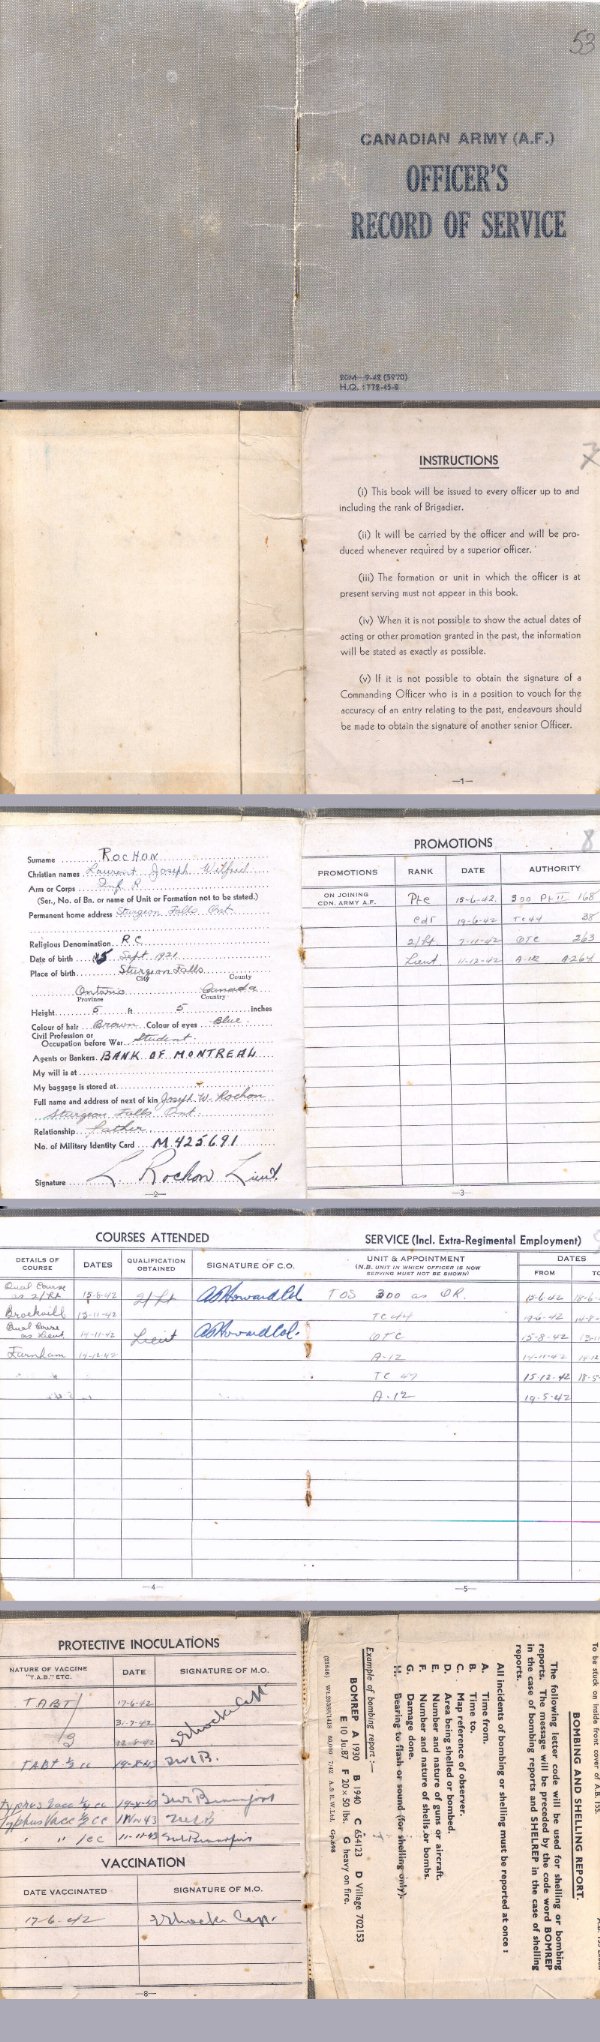 53
CANADIAN ARMY (A.F.)
OFFICER'S
RECORD OF SERVICE
20M—9-42 (5970)
H.Q. 1772-45-8
7
INSTRUCTIONS
(i) This book will be issued to every officer up to and
including the rank of Brigadier.
(ii) It will be carried by the officer and will be pro-
duced whenever required by a superior officer.
(iii) The formation or unit in which the officer is at
present serving must not appear in this book.
(iv) When it is not possible to show the actual dates of
acting or other promotion granted in the past, the information
will be stated as exactly as possible.
(v) If it is not possible to obtain the signature of a
Commanding Officer who is in a position to vouch for the
accuracy of an entry relating to the past, endeavours should
be made to obtain the signature of another senior Officer.
—1—
Surname ROCHON
Christian names Laurent Joseph Wilfred
Arm or Corps Inf. R.
(Ser., No. of Bn. or name of Unit or Formation not to be stated.)
Permanent home address Sturgeon Falls Ont.
Religious Denomination R C
Date of birth 15 Sept. 1921
Place of birth Sturgeon Falls
City County
Ontario Canada
Province Country
Height 5 ft 5 inches
Colour of hair Brown Colour of eyes Blue
Civil Profession or
Occupation before War Student
Agents or Bankers BANK OF MONTREAL
My will is at
My baggage is stored at
Full name and address of next of kin Joseph W. Rochon
Sturgeon Falls Ont.
Relationship Father
No. of Military Identity Card M 425691
Signature L. Rochon Lieut.
—2—
8
PROMOTIONS
PROMOTIONS RANK DATE AUTHORITY
ON JOINING
CDN. ARMY A.F. Pte 15-6-42 300 Pt II 168
Cdt 19-6-42 TC44 38
2/Lt 7-11-42 OTC 263
Lieut 11-12-42 A-12 A264
—3—
COURSES ATTENDED
DETAILS OF
COURSE DATES QUALIFICATION
OBTAINED SIGNATURE OF C.O.
Qual Course
as 2/Lt 15-8-42 2/Lt
Brockville 13-11-42
Qual Course
as Lieut 14-11-42 Lieut
Farnham 14-12-42
—4—
SERVICE (Incl. Extra-Regimental Employment)
UNIT & APPOINTMENT
(N.B. UNIT IN WHICH OFFICER IS NOW
SERVING MUST NOT BE SHOWN)
DATES
FROM TO
TOS 300 as OR. 15-6-42 18-6-
TC 44 19-6-42 14-8-
OTC 15-8-42 13-11
A-12 14-11-42 14-12
TC 15-12-42 18-5-
A-12 19-5-42
—5—
PROTECTIVE INOCULATIONS
NATURE OF VACCINE
"T.A.B." ETC. DATE SIGNATURE OF M.O.
TABT 17-6-42
TABT
Typhus Vacc
Typhus Vacc
" " 1cc 11-11-43
VACCINATION
DATE VACCINATED SIGNATURE OF M.O.
17-6-42
—8—
To be stuck on inside front cover of A.B. 155.
BOMBING AND SHELLING REPORT.
The following letter code will be used for shelling or bombing
reports. The message will be preceded by the code word BOMREP
in the case of bombing reports and SHELREP in the case of shelling
reports.
All incidents of bombing or shelling must be reported at once :
A. Time from.
B. Time to.
C. Map reference of observer.
D. Area being shelled or bombed.
E. Number and nature of guns or aircraft.
F. Number and nature of shells or bombs.
G. Damage done.
H. Bearing to flash or sound (for shelling only).
Example of bombing report :—
BOMREP A 1930 B 1940 C 654123 D Village 702153
E 10 Ju.87 F 20 x 50 lbs. G heavy on fire.